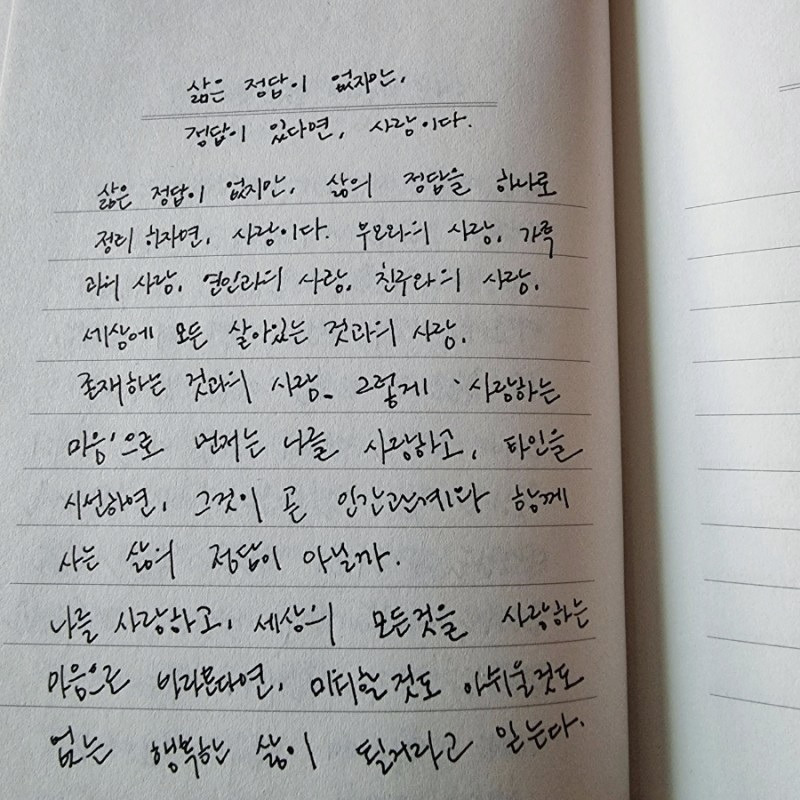 삶은 정답이 없지만,
정답이 있다면, 사랑이다.
삶은 정답이 없지만, 삶의 정답을 하나로
정리 하자면, 사랑이다. 부모와의 사랑, 가족
과의 사랑, 연인과의 사랑, 친구와의 사랑,
세상에 모든 살아있는 것과의 사랑,
존재하는 것과의 사랑. 그렇게 '사랑하는
마음'으로 먼저는 나를 사랑하고, 타인을
시선하면, 그것이 곧 인간관계와 함께
사는 삶의 정답이 아닐까.
나를 사랑하고, 세상의 모든것을 사랑하는
마음으로 바라본다면, 미워할것도 아쉬울것도
없는 행복한 삶이 될거라고 믿는다.